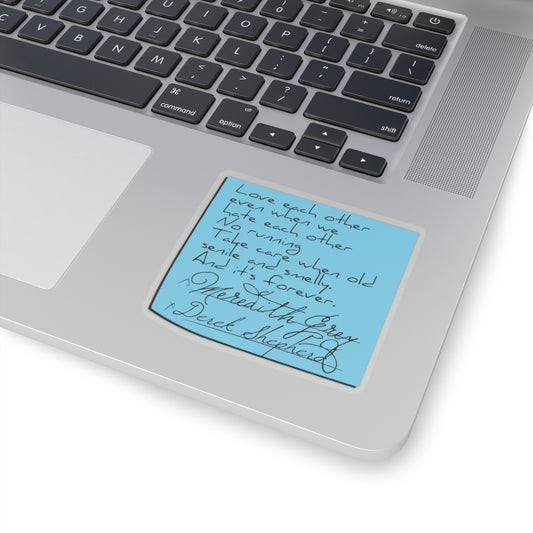 delete
return
shift
command
option
Love each other
even when we
hate each other
No running
Take care when old
senile and smelly.
And it's forever.
x Meredith Grey
x Derek Shepherd